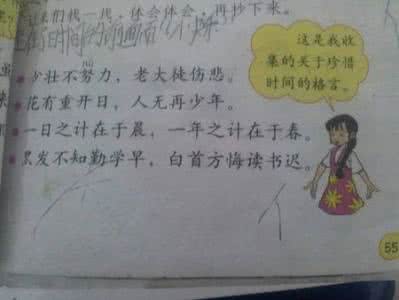 来们找一找，体会体会，再抄下来。
少壮不努力，老大徒伤悲。
花有重开日，人无再少年。
一日之计在于晨，一年之计在于春。
黑发不知勤学早，白首方悔读书迟。
这是我收
集的关于珍惜
时间的格言。
55